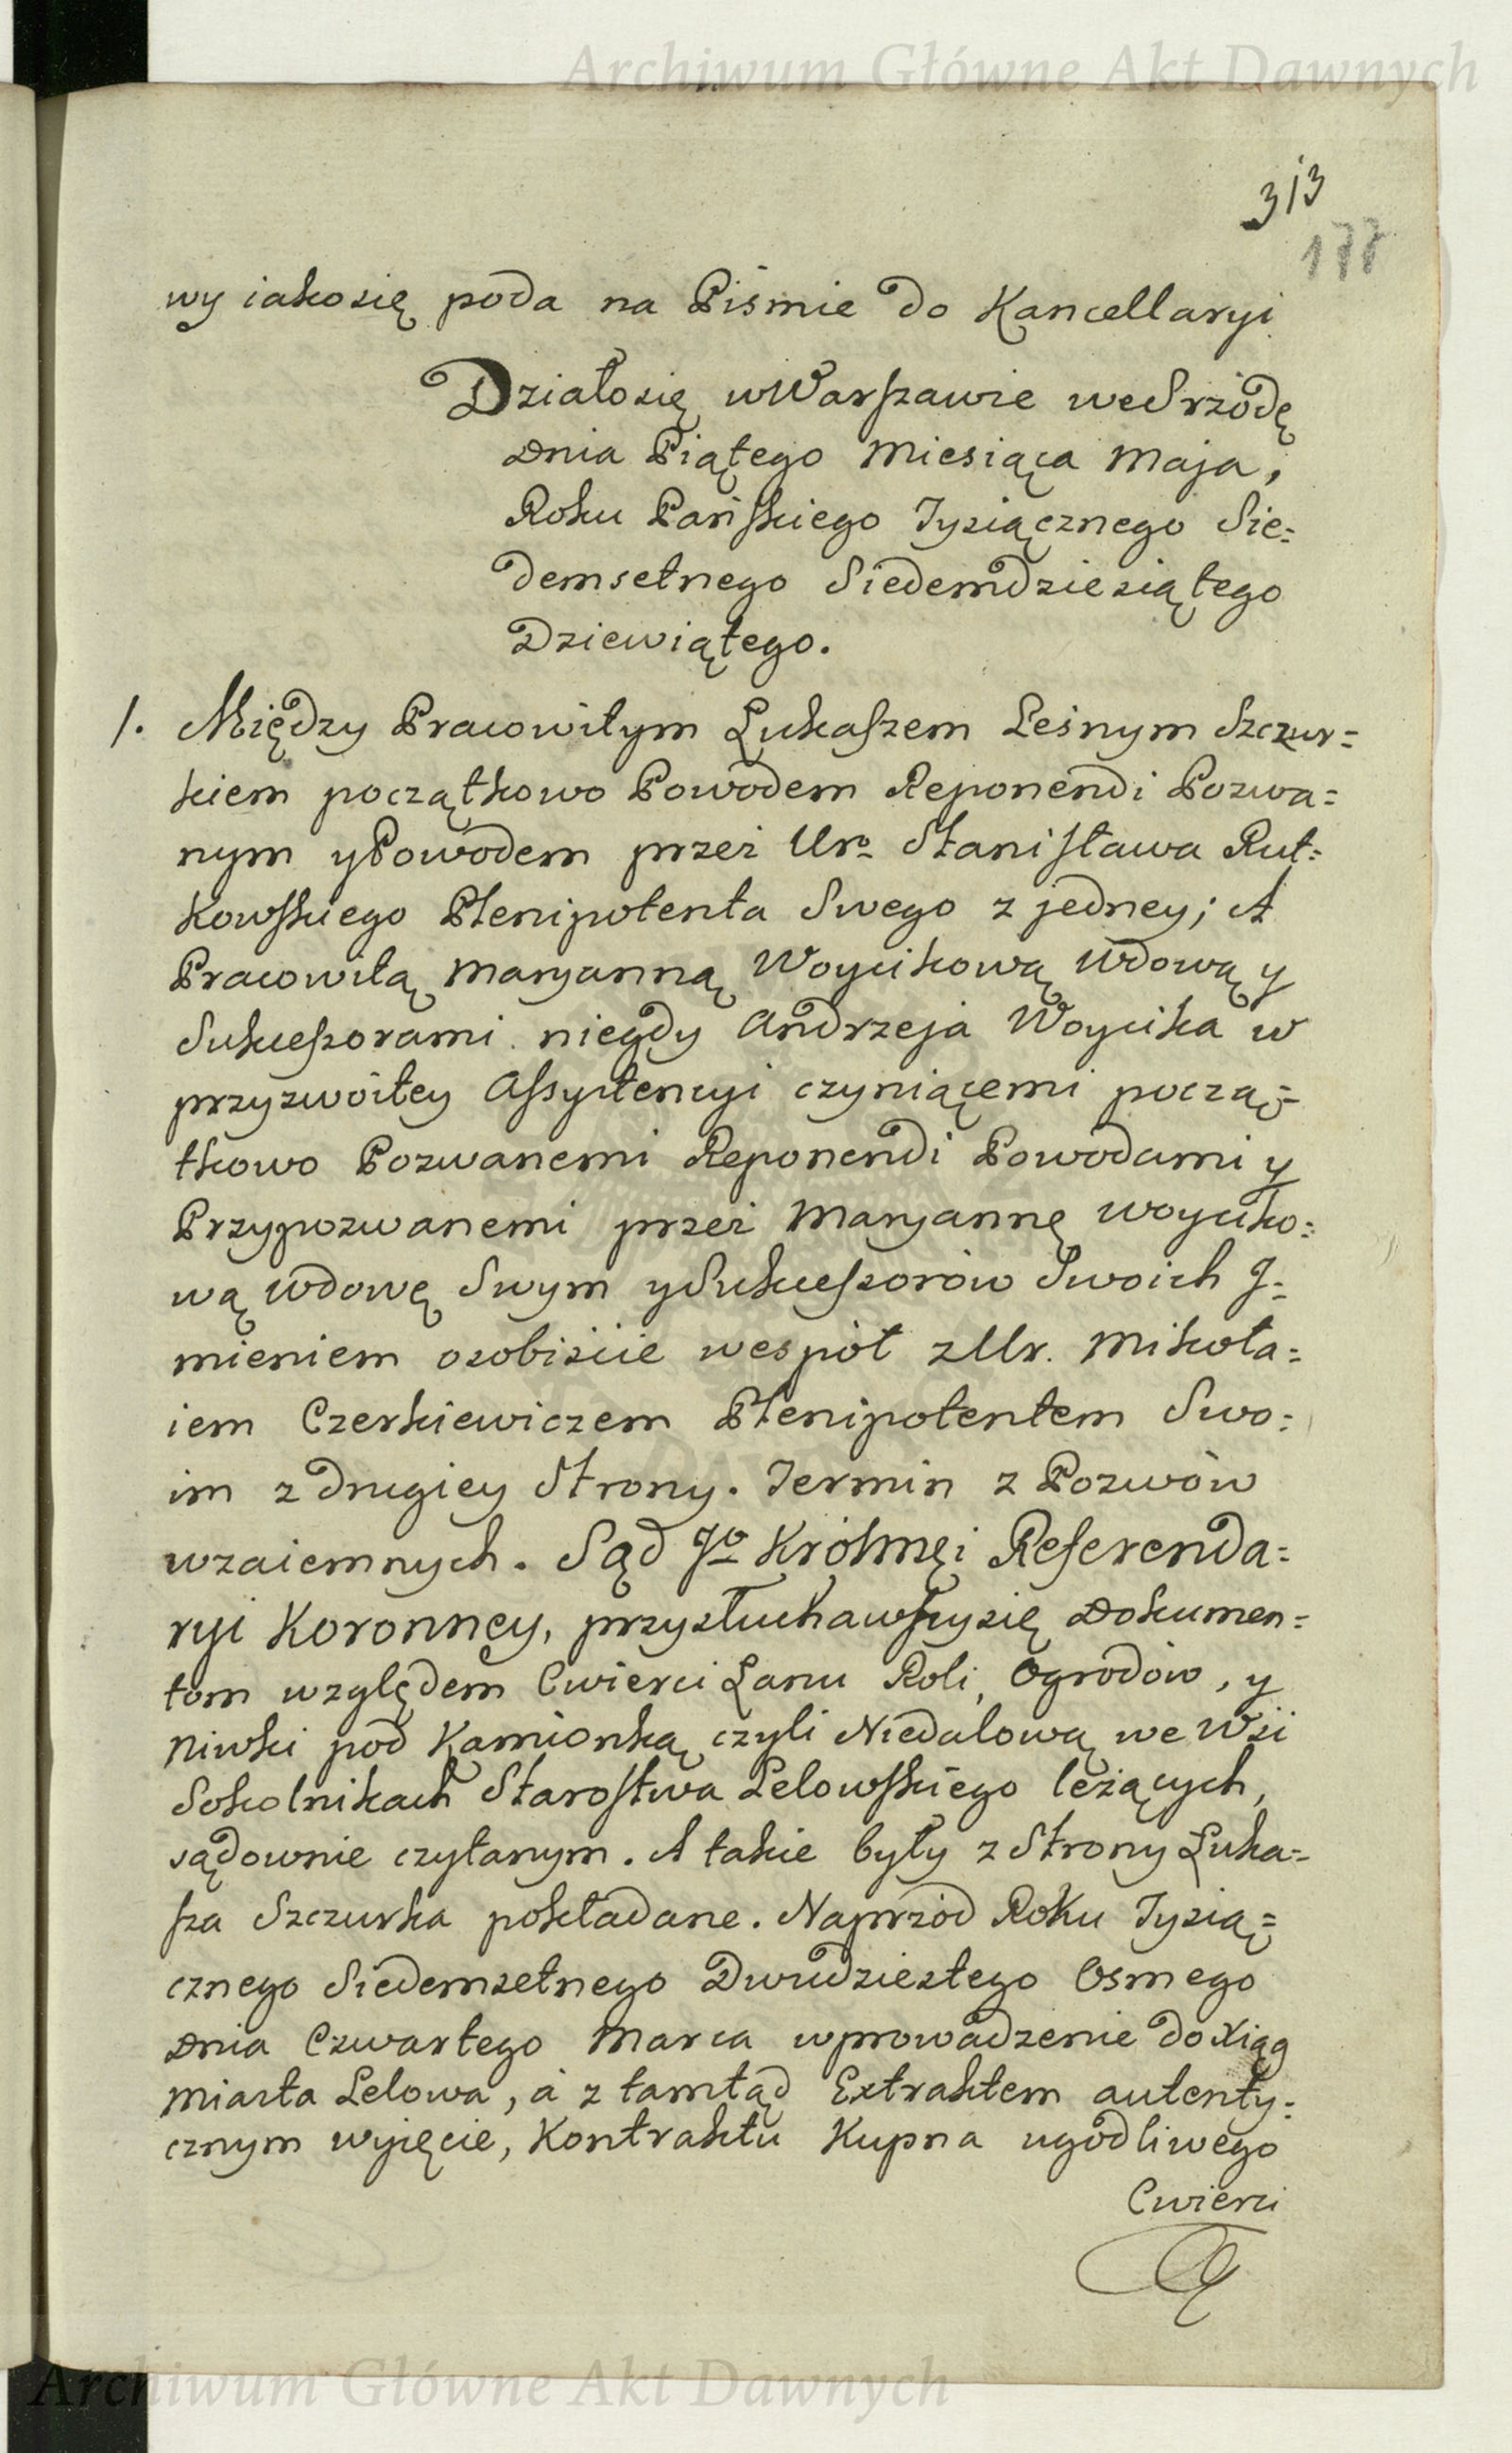 Archiwum Główne Akt Dawnych
313
177
wy iakosię poda na Piśmie do Kancellaryi
Działosię wWarszawie weSrzodę
Dnia Piątego Miesiąca Maja,
Roku Pańskiego Tysiącznego Sie=
demsetnego Siedemdziesiątego
Dziewiątego.
1. Między Pracowitym Łukaszem Leśnym Szczur=
kiem początkowo Powodem Reponendi Pozwa=
nym yPowodem przez Uro Stanisława Rut=
kowskiego Plenipotenta Swego z jedney; A
Pracowitą Maryanną Woycikową Wdową y
Sukcessorami niegdy Andrzeja Woycika w
przyzwoitey Assystencyi czyniącemi począ=
tkowo Pozwanemi Reponendi Powodami y
Przypozwanemi przez Maryannę Woyciko=
wą Wdowę Swym ySukcessorów Swoich I=
mieniem osobiście wespół zUr. Mikoła=
iem Czerkiewiczem Plenipotentem Swo=
im z drugiey Strony. Termin z Pozwów
wzaiemnych. Sąd Jo Królmći Referenda=
ryi Koronney, przysłuchawszysię Dokumen=
tom względem Cwierci Łanu Roli, Ogrodów, y
Niwki pod Kamionką czyli Niedalową we Wsi
Sokolnikach Starostwa Lelowskiego leżących,
sądownie czytanym. A takie były z Strony Łuka=
sza Szczurka pokładane. Naprzód Roku Tysią=
cznego Siedemsetnego Dwudziestego Osmego
Dnia Czwartego Marca wprowadzenie doXiąg
Miasta Lelowa, á z tamtąd Extraktem autenty=
cznym wyjęcie, Kontraktu Kupna ugodliwego
Cwierci
Archiwum Główne Akt Dawnych